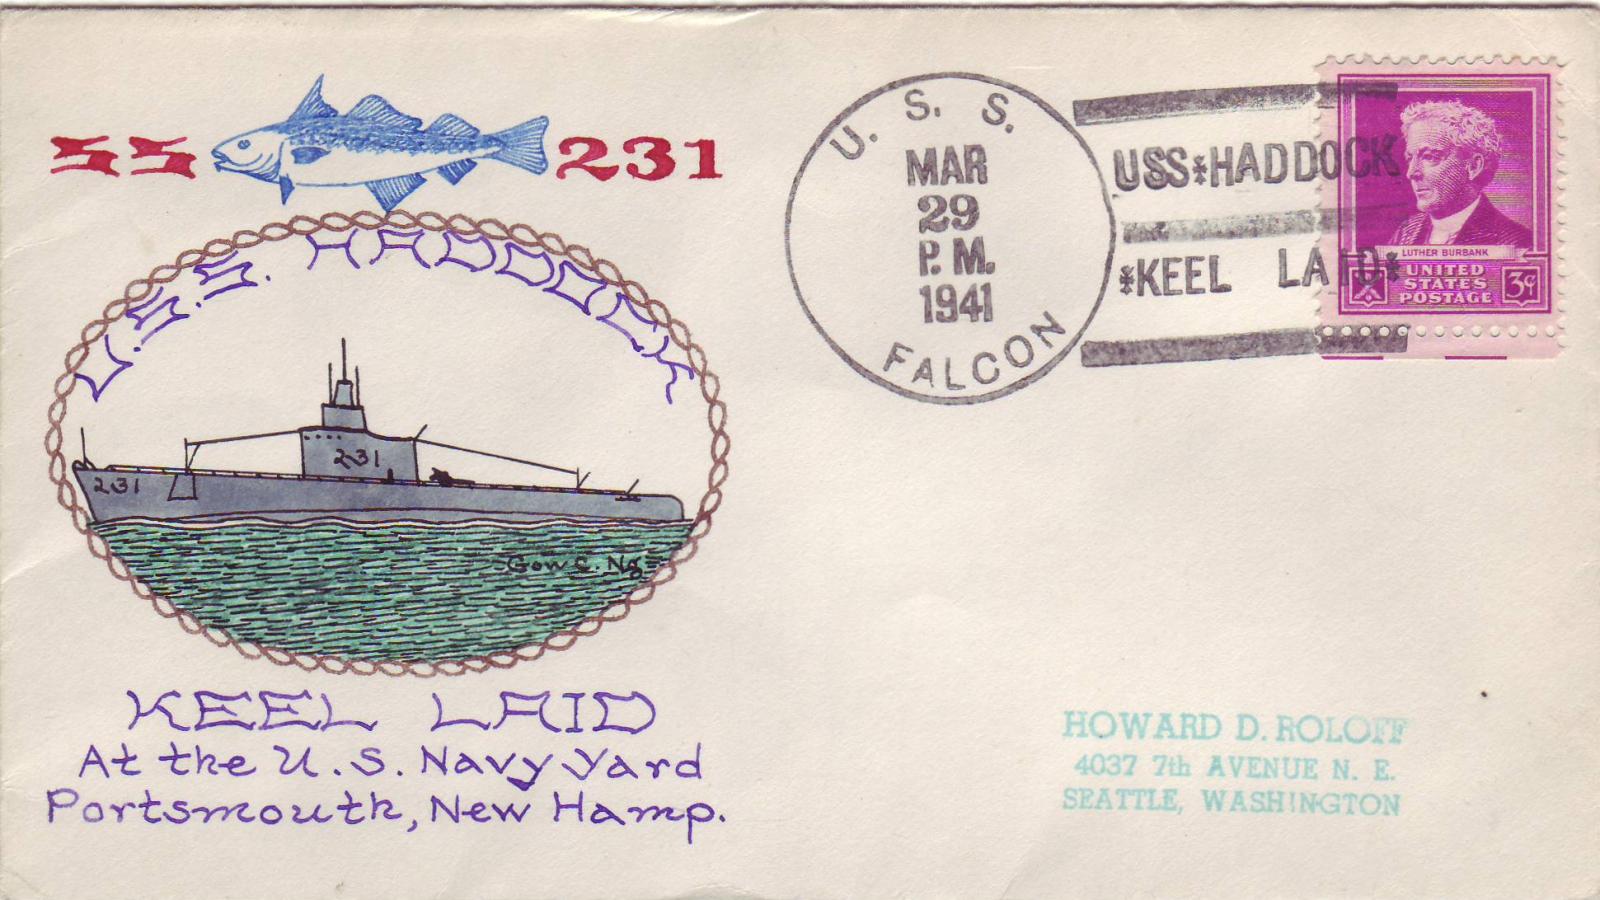 SS 231
U.S.S. HADDOCK
231
231
Gow C. Ng
KEEL LAID
At the U.S. Navy Yard
Portsmouth, New Hamp.
U. S. S.
MAR
29
P. M.
1941
FALCON
USS HADDOCK
KEEL LAID
LUTHER BURBANK
UNITED
STATES
POSTAGE
3¢
HOWARD D. ROLOFF
4037 7th AVENUE N. E.
SEATTLE, WASHINGTON